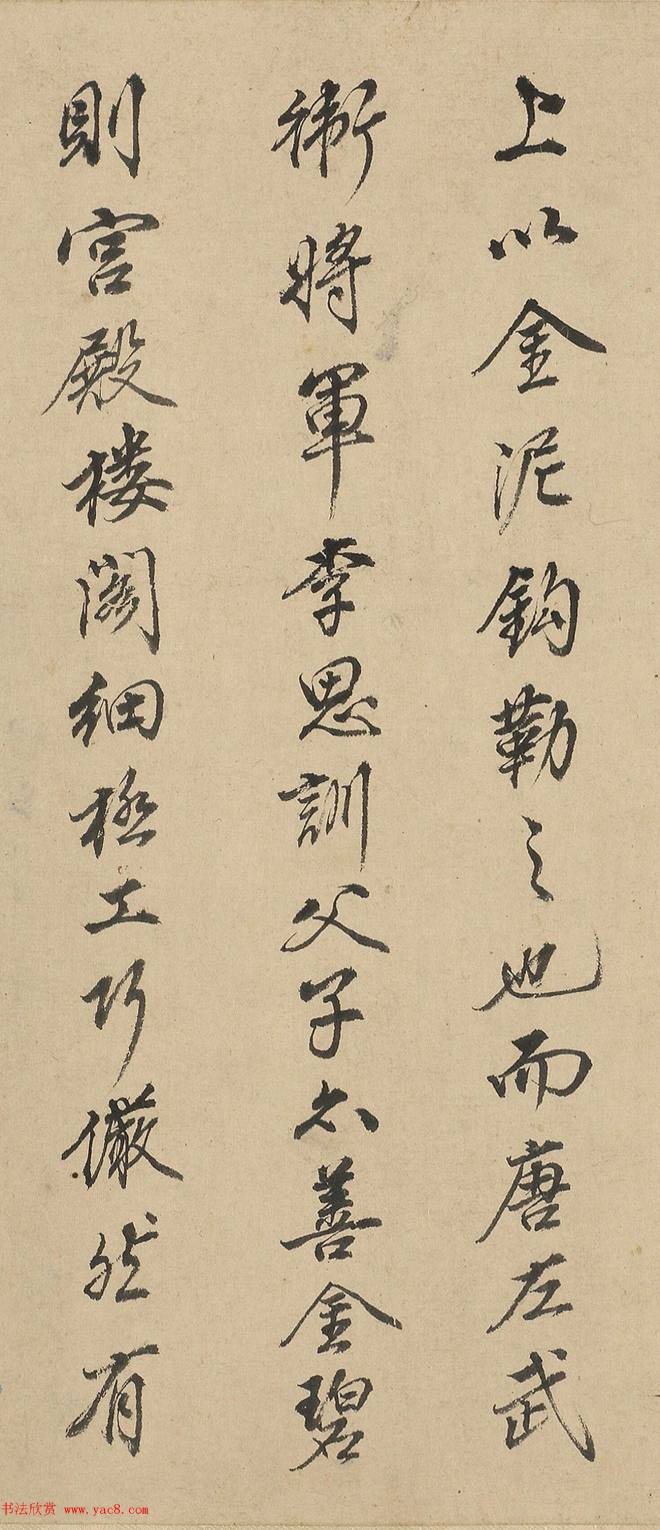 上以金泥鈎勒之也而唐左武
衛將軍李思訓父子亦善金碧
則宮殿楼閣細極工巧儼然有
书法欣赏 www.yac8.com